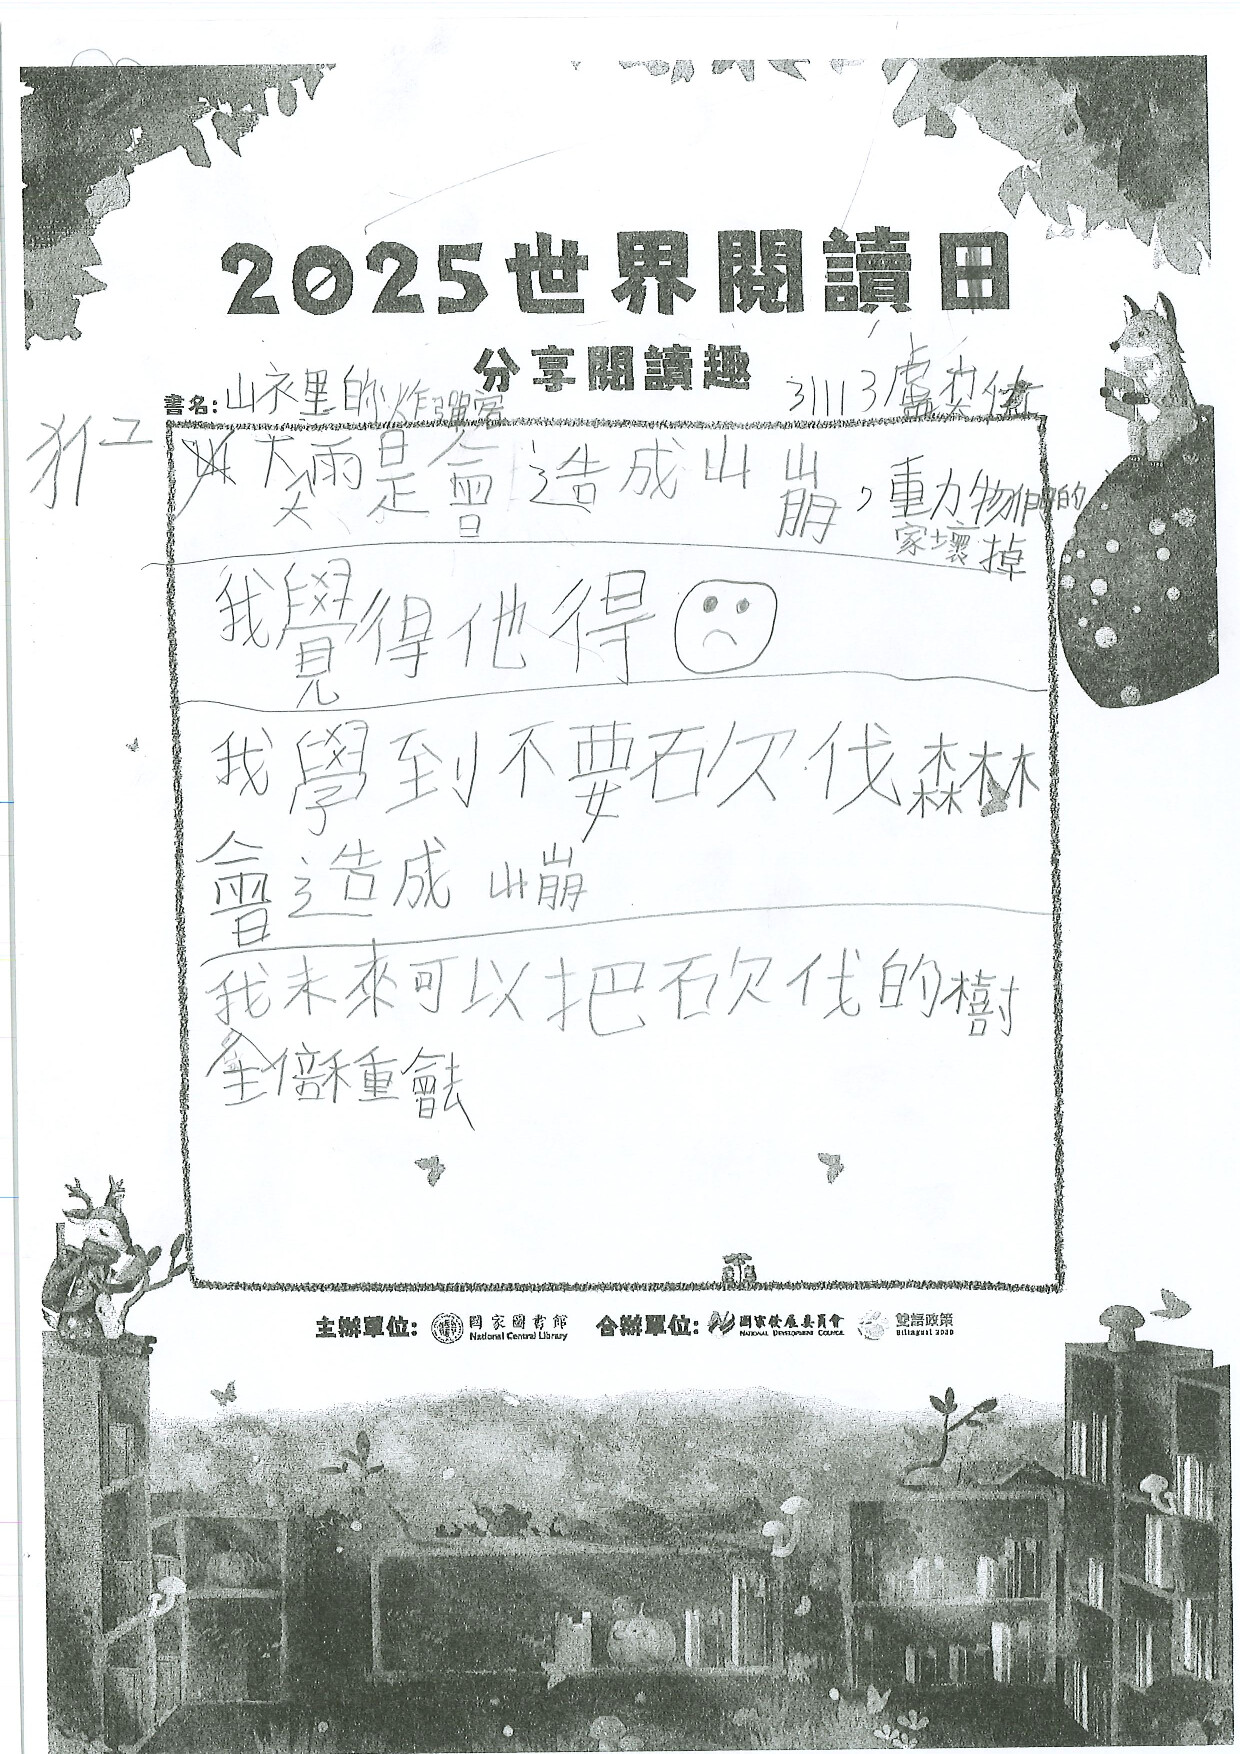 2025世界閱讀日
分享閱讀趣
書名:山衣里的炸彈客
31113盧
大雨是會造成山崩,動物們的
家壞掉
我覺得他得
我學到不要砍伐森林
會造成山崩
我未來可以把砍伐的樹
全倍種會去
主辦單位: 國家圖書館 National Central Library 合辦單位: 國家發展委員會 NATIONAL DEVELOPMENT COUNCIL 雙語政策 Bilingual 2030